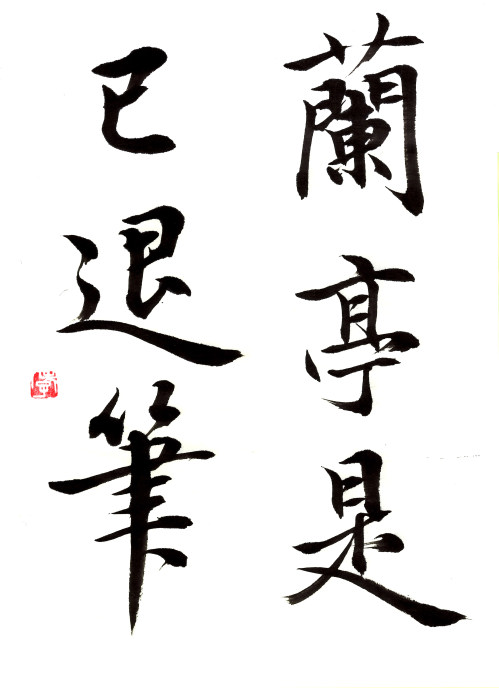 蘭亭是
已退筆